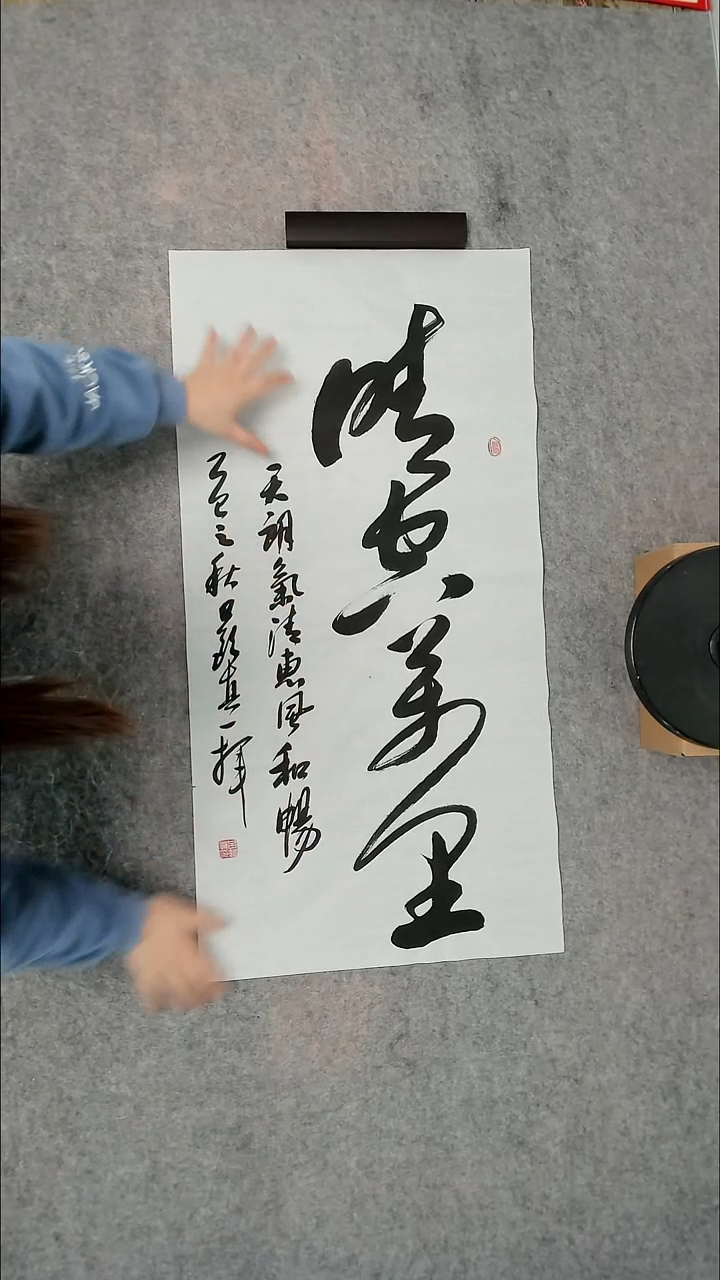 晴空萬里
天朗氣清惠風和暢
乙巳之秋日真一揮